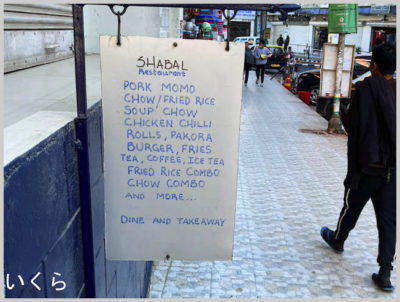 SHABAL
Restaurant
PORK MOMO
CHOW/FRIED RICE
SOUP CHOW
CHICKEN CHILLI
ROLLS, PAKORA
BURGER, FRIES
TEA, COFFEE, ICE TEA
FRIED RICE COMBO
CHOW COMBO
AND MORE...
DINE AND TAKEAWAY
いくら